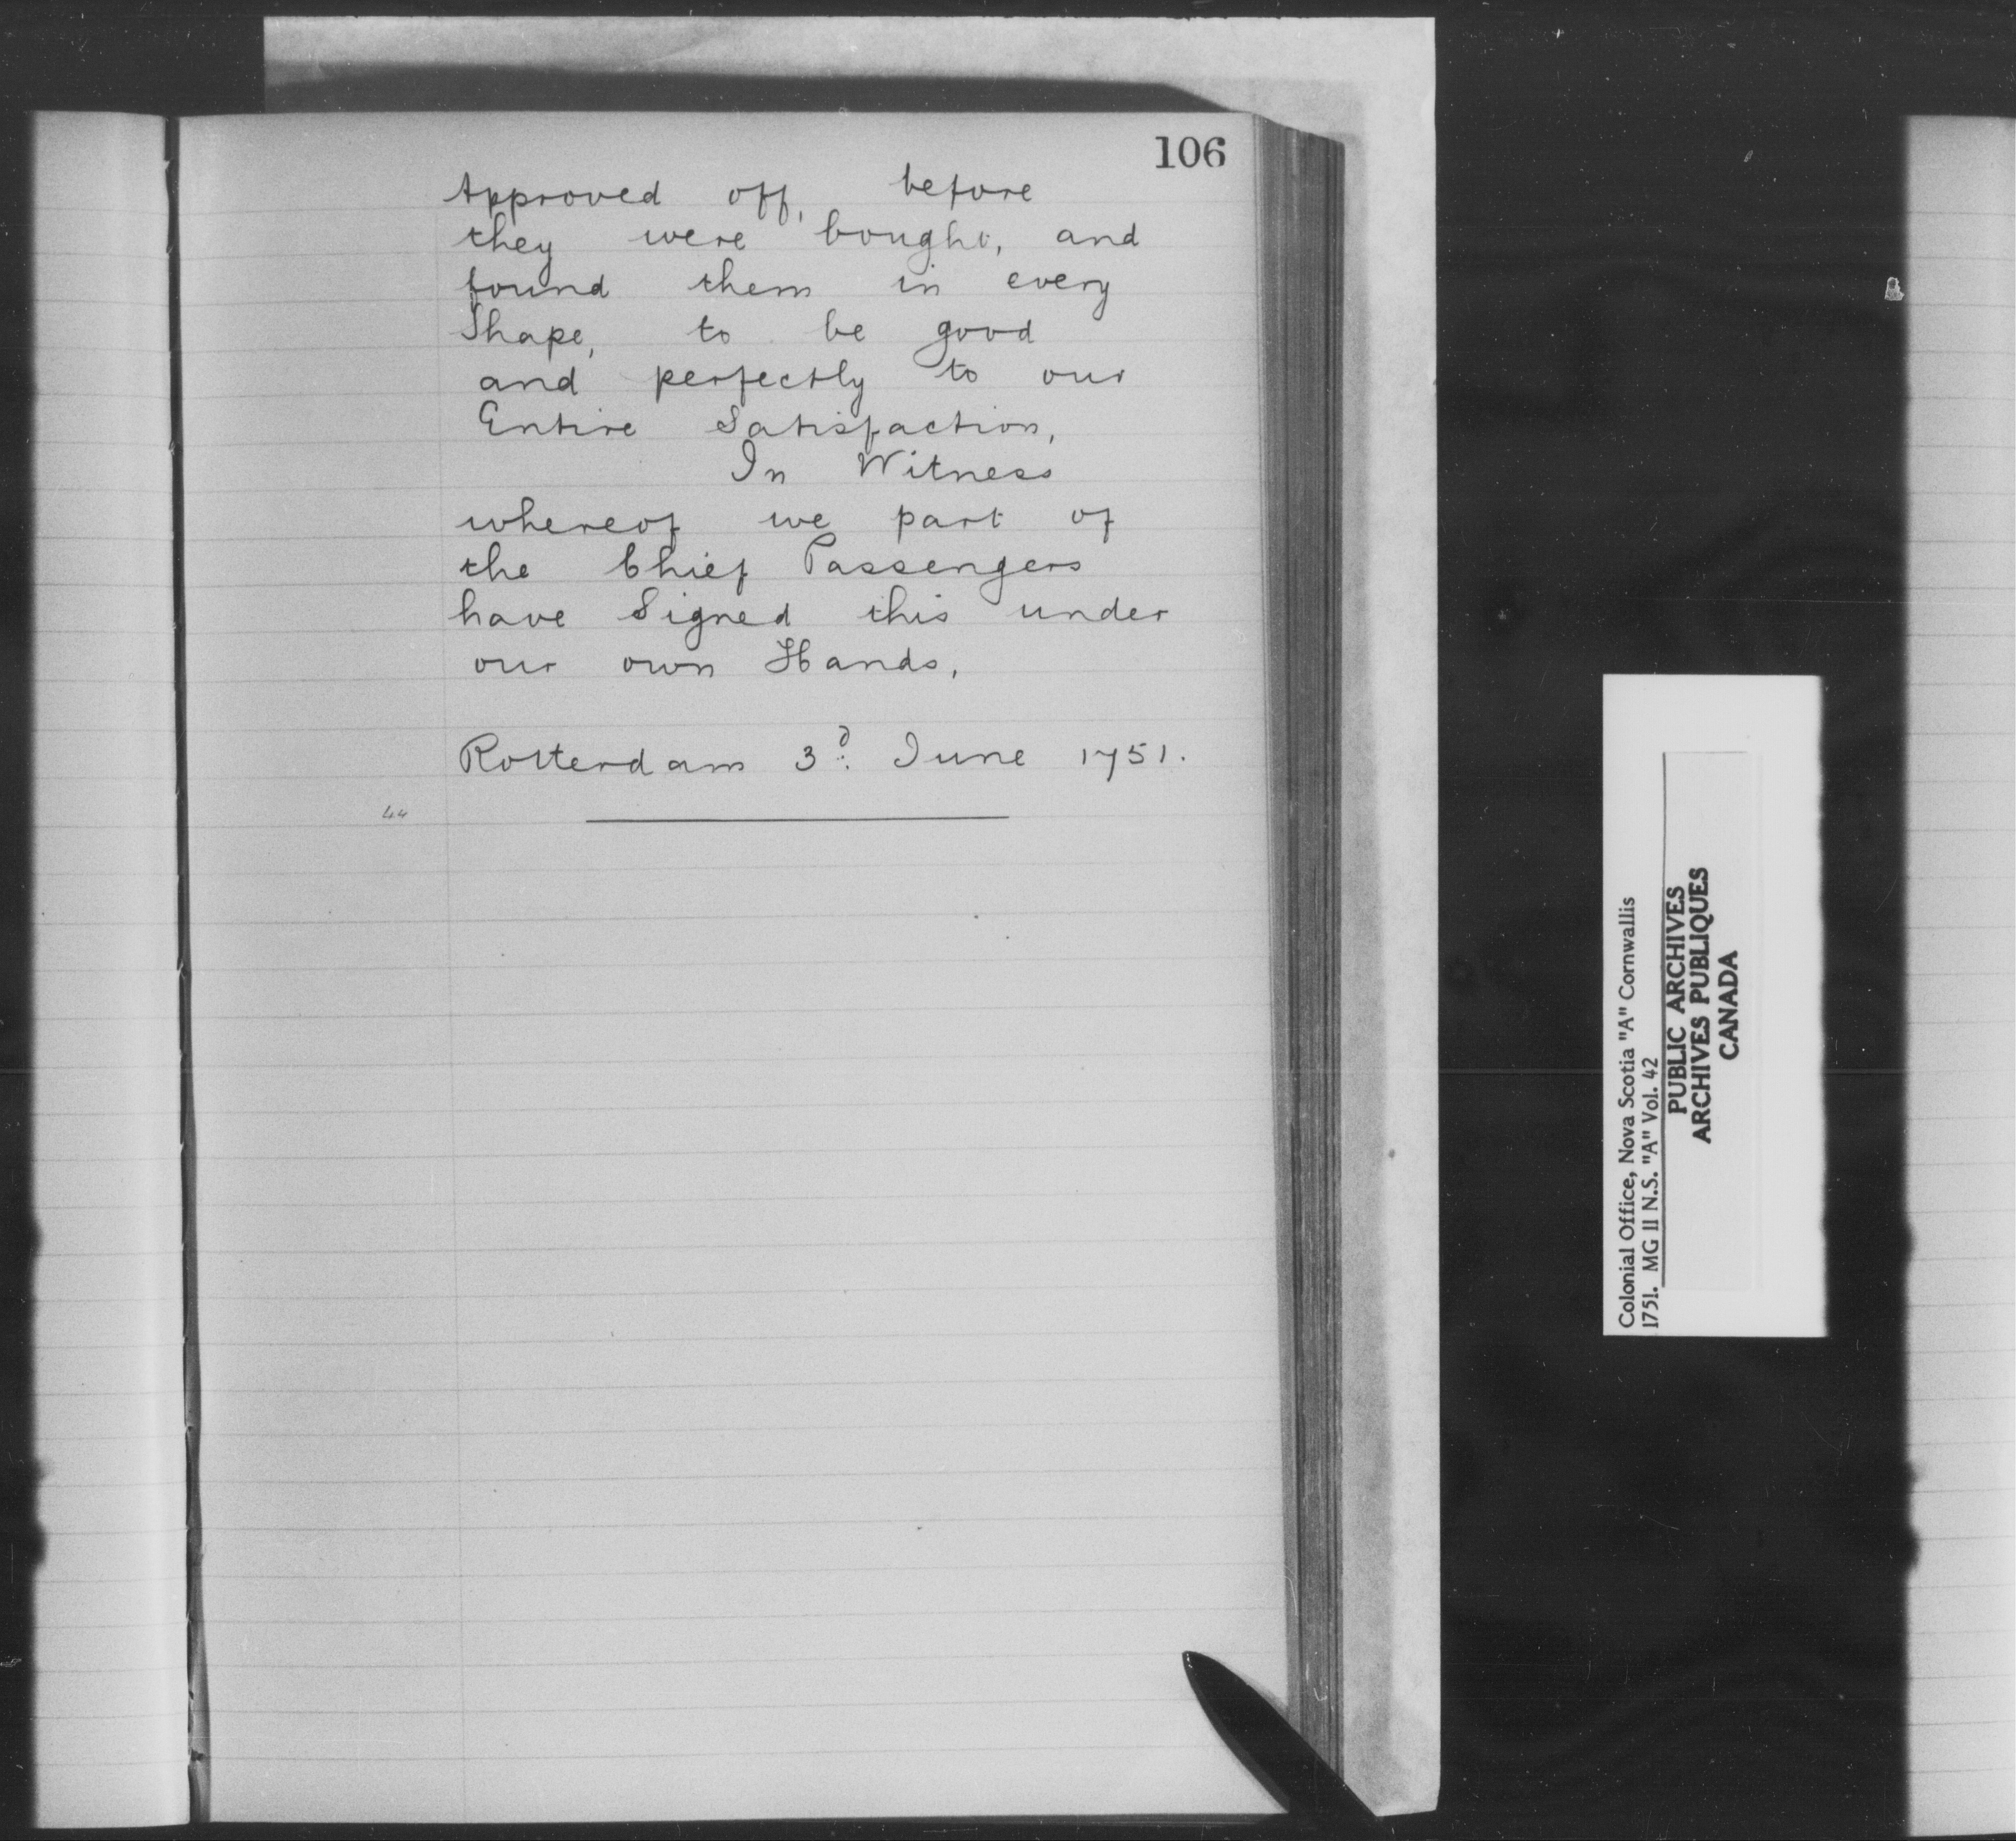 106
Approved off, before
they were bought, and
found them in every
Shape, to be good
and perfectly to our
Entire Satisfaction,
In Witness
whereof we part of
the Chief Passengers
have Signed this under
our own Hands,
Rotterdam 3d. June 1751.
44
Colonial Office, Nova Scotia "A" Cornwallis
1751. MG 11 N.S. "A" Vol. 42
PUBLIC ARCHIVES
ARCHIVES PUBLIQUES
CANADA